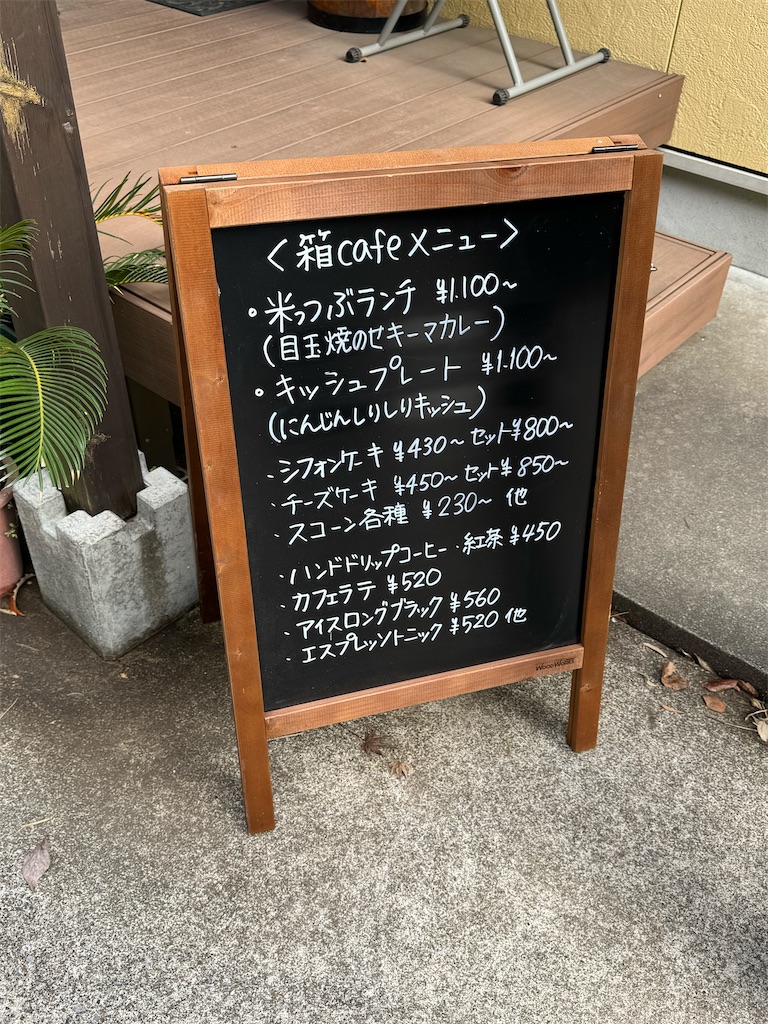 〈箱cafeメニュー〉
・米っつぶランチ ¥1.100~
(目玉焼のせキーマカレー)
・キッシュプレート ¥1.100~
(にんじんしりしりキッシュ)
・シフォンケーキ ¥430~ セット¥800~
・チーズケーキ ¥450~ セット¥850~
・スコーン各種 ¥230~ 他
・ハンドドリップコーヒー・紅茶 ¥450
・カフェラテ ¥520
・アイスロングブラック ¥560
・エスプレッソトニック ¥520 他